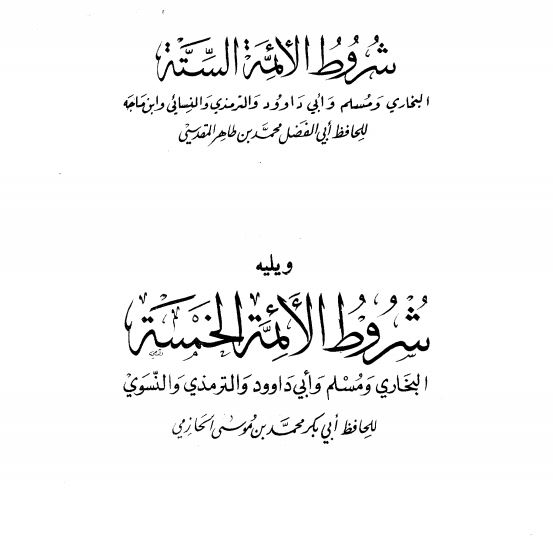 شُرُوطُ الأَئِمَّة السِّتَّة
البخاري وَمُسلم وَأبي دَاوُود وَالترمذي وَالنسائي وَابن مَاجَه
للحافظ أبي الفَضل محمَّد بن طاهِر المقدسيّ
ويليه
شُرُوطُ الأَئِمَّة الخَمْسَة
البخَاري وَمُسْلم وَأبي دَاوود وَالترمذي وَالنّسَوي
للحافظ أبي بكر محمَّد بن مُوسَى الحَازِمي